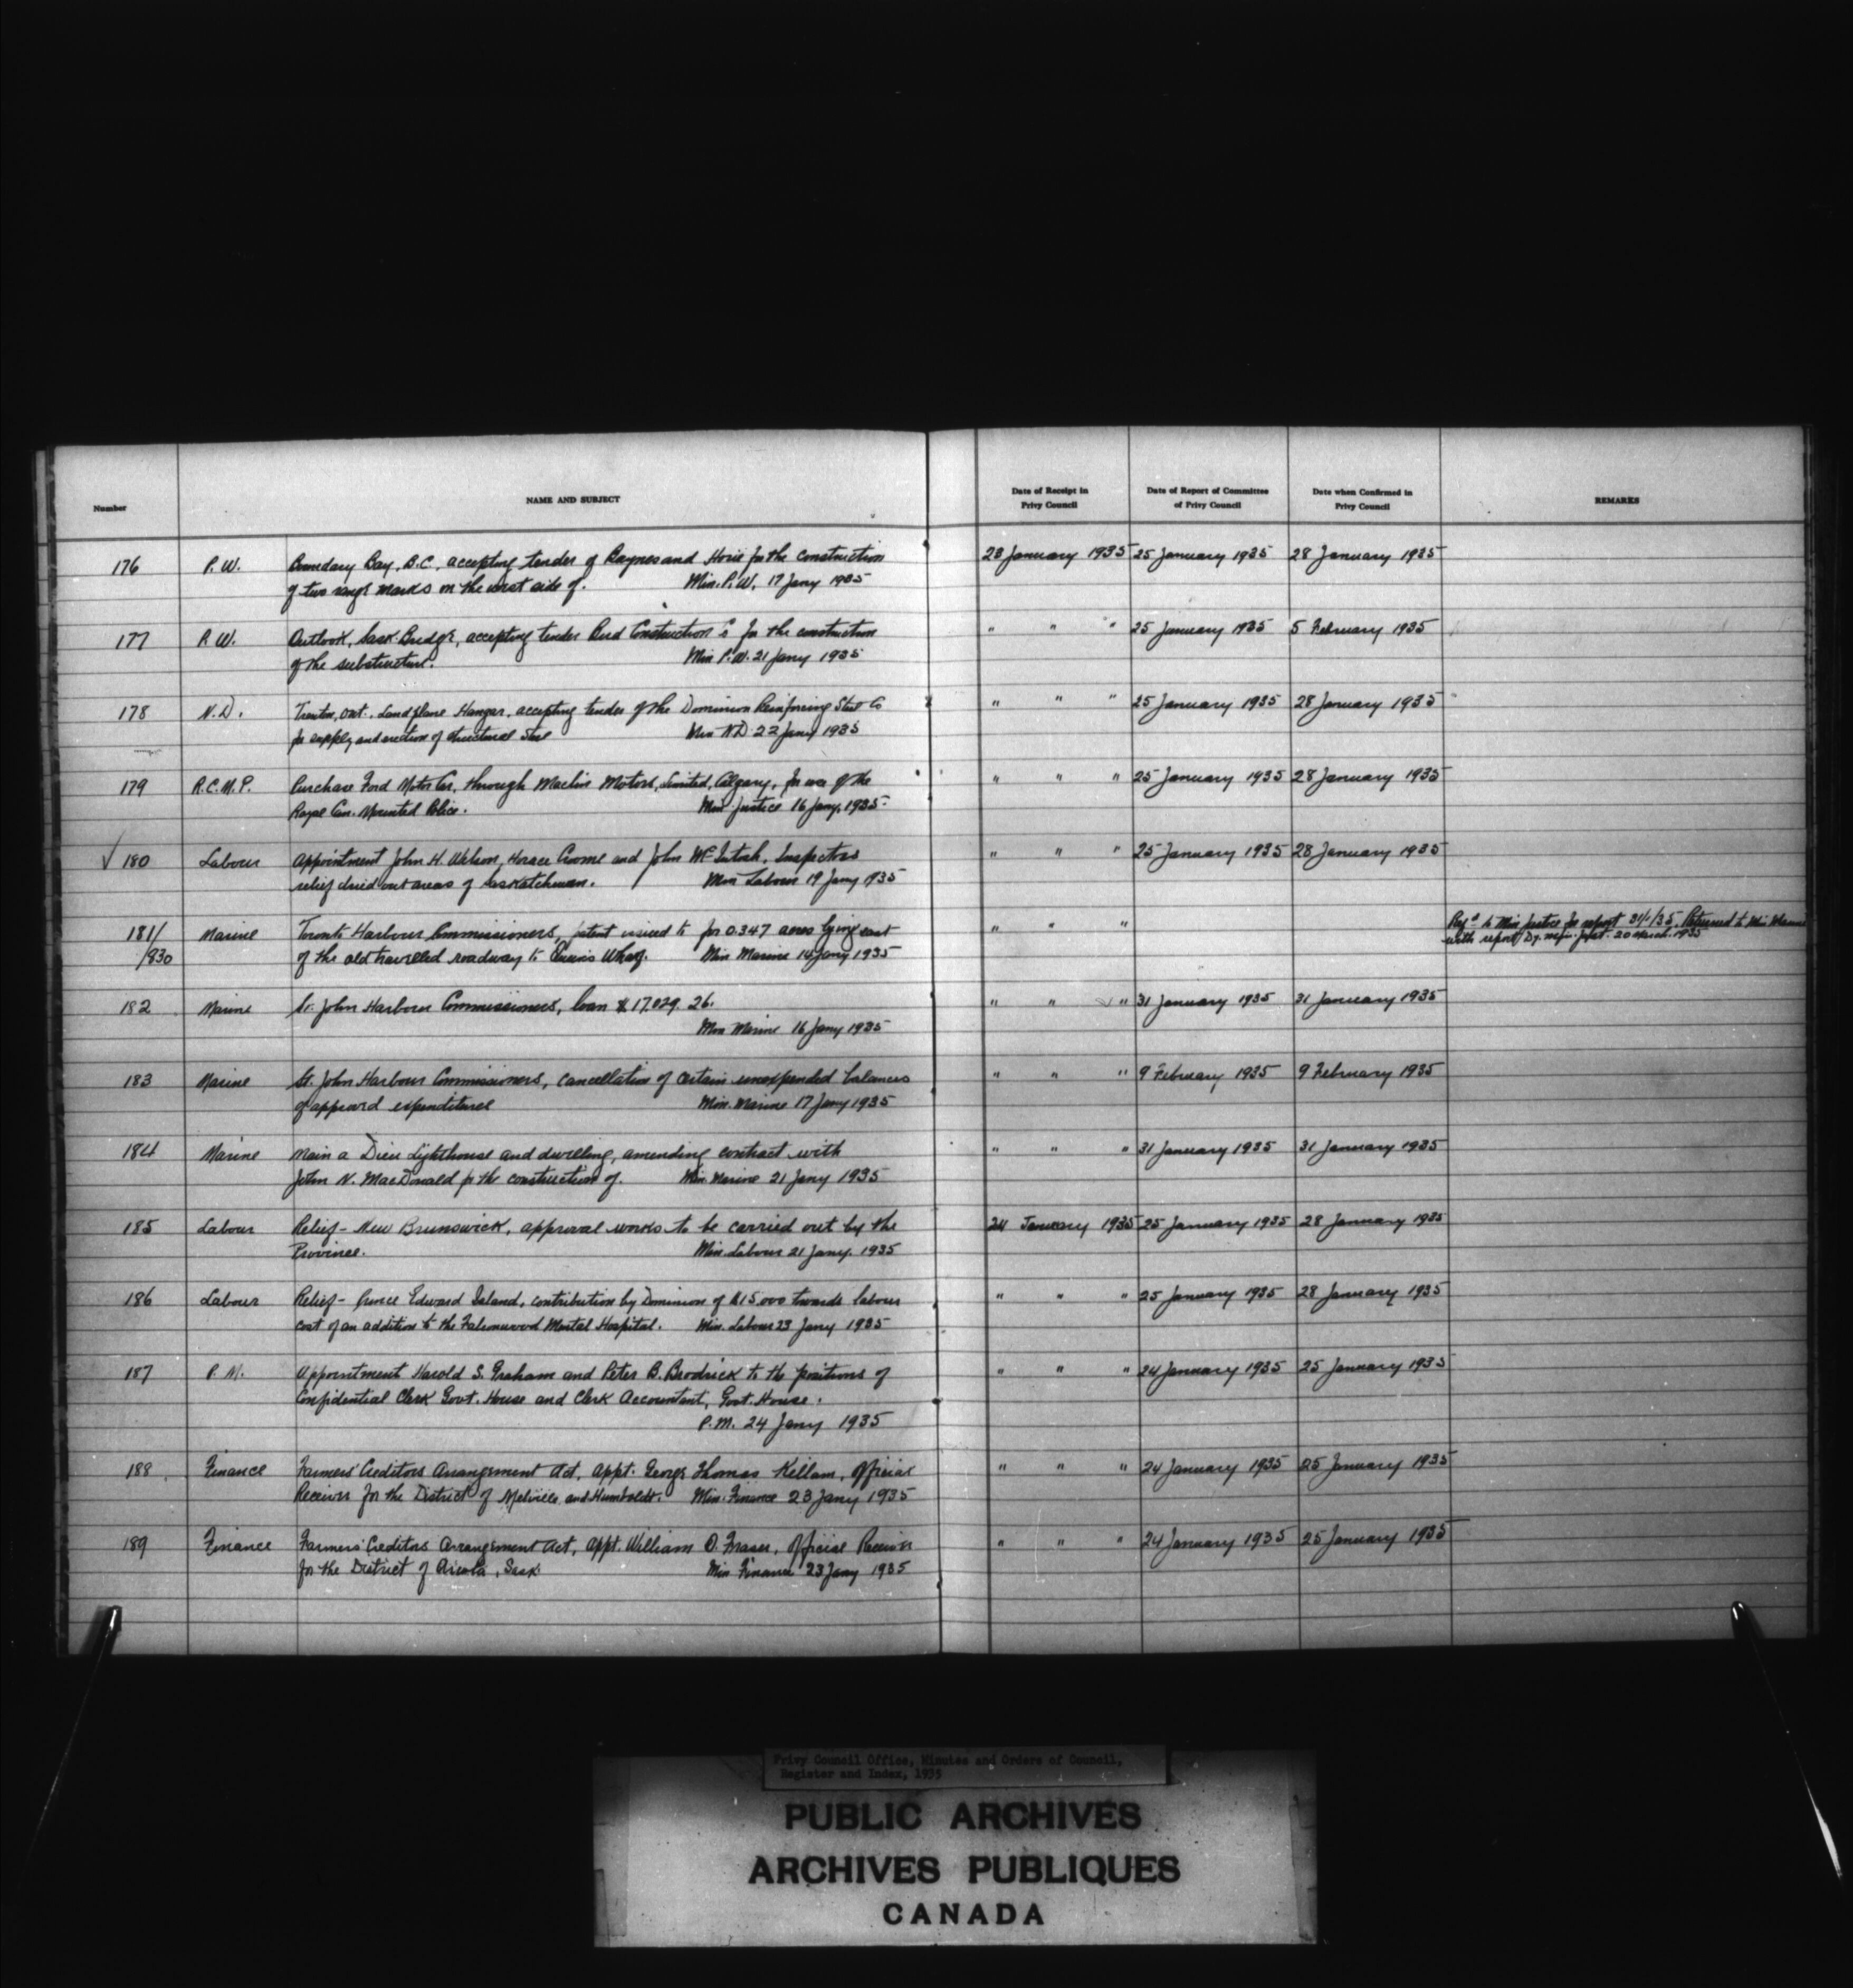 Number
NAME AND SUBJECT
Date of Receipt in
Privy Council
Date of Report of Committee
of Privy Council
Date when Confirmed in
Privy Council
REMARKS
176 P.W. Boundary Bay, B.C., accepting tender of Raynes and Horie for the construction 23 January 1935 25 January 1935 28 January 1935
of two range marks on the west side of. Min. P.W. 17 Jany 1935
177 P.W. Outlook, Sask. Bridge, accepting tender Bird Construction Co for the construction " " " 25 January 1935 5 February 1935
of the substructure. Min P.W. 21 Jany 1935
178 N.D. Trenton, Ont., Landplane Hangar, accepting tender of the Dominion Reinforcing Steel Co " " " 25 January 1935 28 January 1935
for supply and erection of structural steel Min N.D. 22 Jany 1935
179 R.C.M.P. Purchase Ford Motor Car, through Maclin Motors, Limited, Calgary, for use of the " " " 25 January 1935 28 January 1935
Royal Can. Mounted Police. Min. Justice 16 Jany, 1935.
✓ 180 Labour Appointment John H. Wilson, Horace Croome and John McIntosh, Inspectors " " " 25 January 1935 28 January 1935
relief dried out areas of Saskatchewan. Min Labour 19 Jany 1935
181/ Marine Toronto Harbour Commissioners, patent issued to for 0.347 acres lying east " " " Refd to Min Justice for report 31/1/35. Returned to Min Marine
/930 of the old travelled roadway to Wharf. Min Marine 14 Jany 1935 with report Dy. Min. Just. 20 March. 1935
182 Marine St. John Harbour Commissioners, loan $17,029.26. " " " 31 January 1935 31 January 1935
Min Marine 16 Jany 1935
183 Marine St. John Harbour Commissioners, cancellation of certain unexpended balances " " " 9 February 1935 9 February 1935
of approved expenditures Min. Marine 17 Jany 1935
184 Marine Main a Dieu Lighthouse and dwelling, amending contract with " " " 31 January 1935 31 January 1935
John N. MacDonald for the construction of. Min. Marine 21 Jany 1935
185 Labour Relief - New Brunswick, approval works to be carried out by the 24 January 1935 25 January 1935 28 January 1935
Province. Min. Labour 21 Jany. 1935
186 Labour Relief - Prince Edward Island, contribution by Dominion of $15,000 towards labour " " " 25 January 1935 28 January 1935
cost of an addition to the Falconwood Mental Hospital. Min. Labour 23 Jany 1935
187 P.M. Appointment Harold S. Graham and Peter B. Brodrick to the positions of " " " 24 January 1935 25 January 1935
Confidential Clerk Govt. House and Clerk Accountant, Govt. House.
P.M. 24 Jany 1935
188 Finance Farmers' Creditors Arrangement Act, appt. George Thomas Kellam, Official " " " 24 January 1935 25 January 1935
Receiver for the District of Melville and Humboldt. Min. Finance 23 Jany 1935
189 Finance Farmers' Creditors Arrangement Act, appt. William O. Fraser, Official Receiver " " " 24 January 1935 25 January 1935
for the District of Arcola, Sask Min Finance 23 Jany 1935
Privy Council Office, Minutes and Orders of Council,
Register and Index, 1935
PUBLIC ARCHIVES
ARCHIVES PUBLIQUES
CANADA